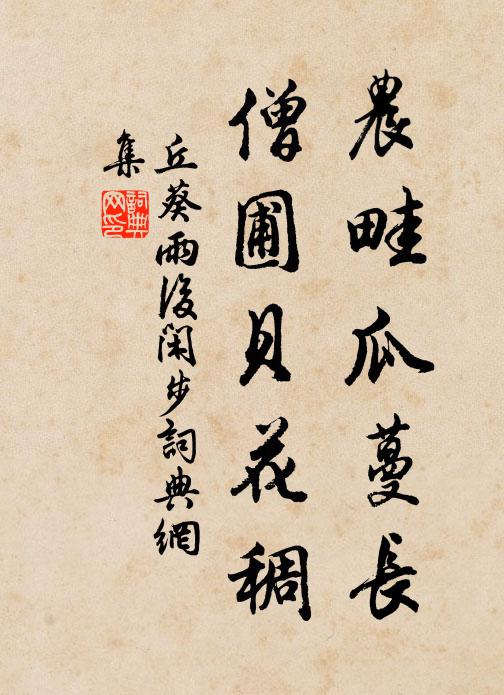 農畦瓜蔓長
僧圃貝花稠
丘葵雨後閑步詞典網
集
詞典
网印